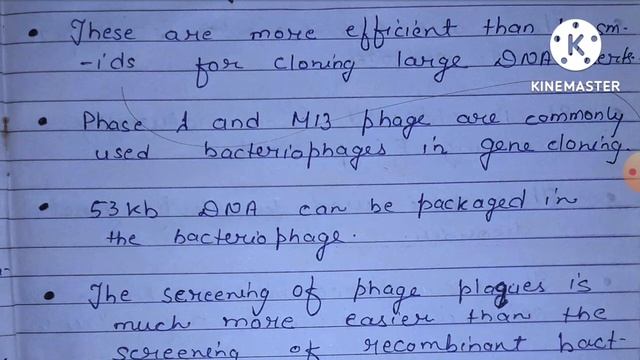 These are more efficient than sm-
-ids for cloning large DNA
KINEMASTER
Phase λ and M13 phage are commonly
used bacteriophages in gene cloning.
53kb DNA can be packaged in
the bacteriophage.
The screening of phage plaques is
much more easier than the
screening of recombinant bact-